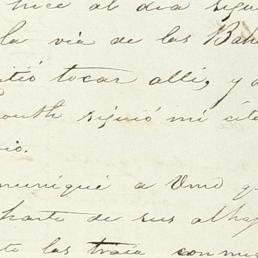 hice al día sigu
la via de las Bah
itió tocar allí, y a
South siguió mi cite
io.
muniqué a Vmd q
parte de sus alhaj
to las traía conmi